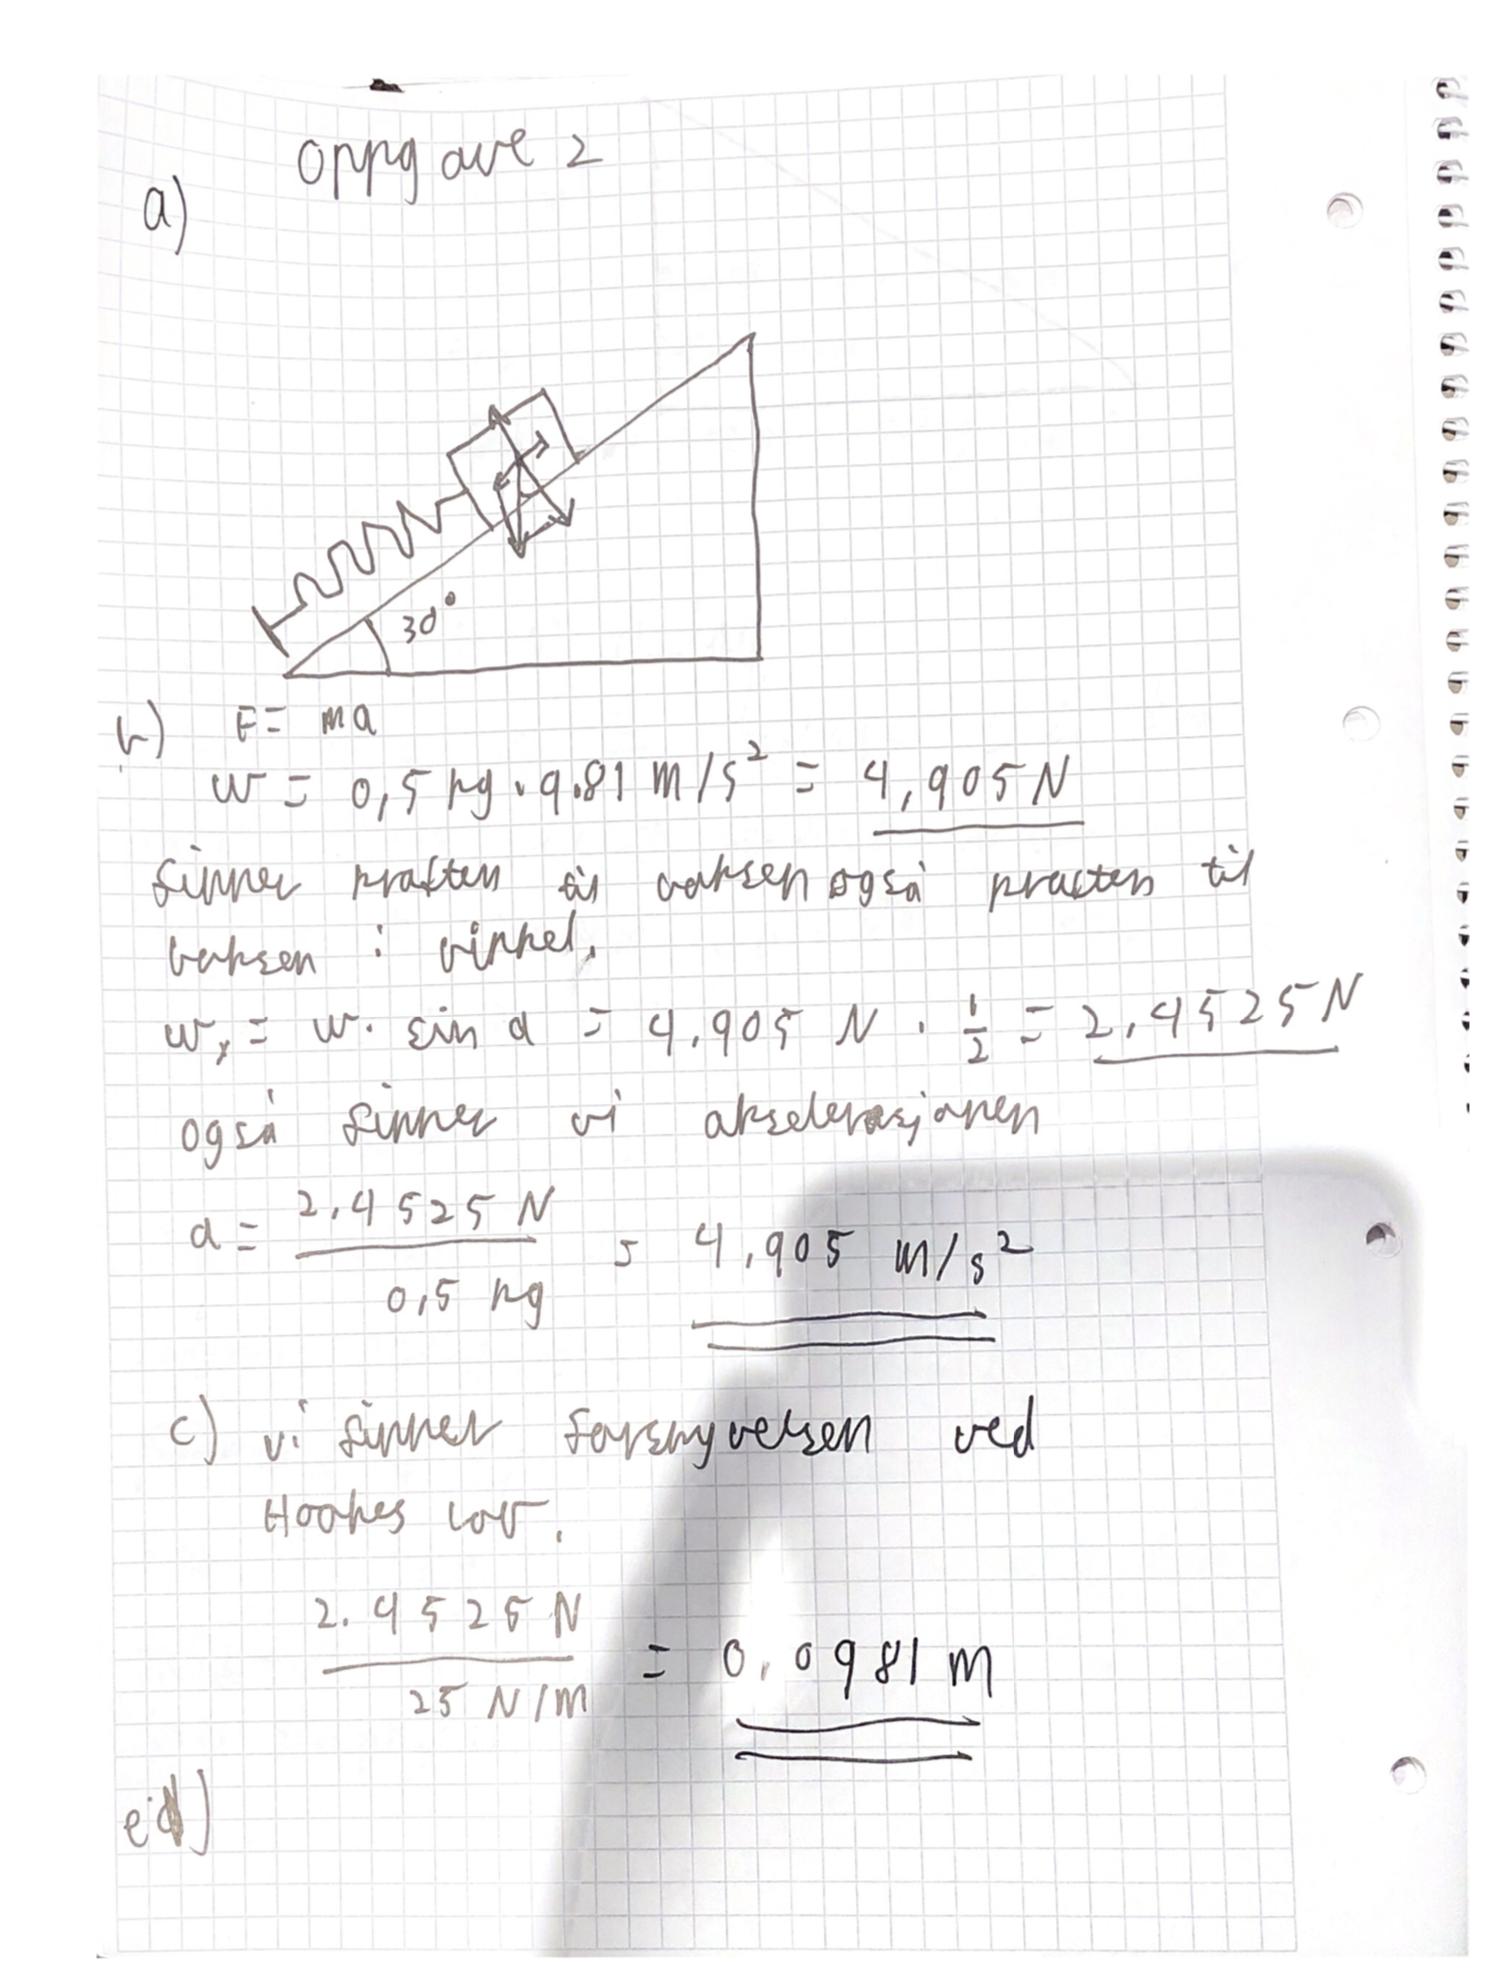 Oppgave 2
a)
30°
b) F = ma
w = 0,5 kg · 9.81 m/s² = 4,905 N
finner kraften til vaksen også kraften til
vaksen i vinkel.
wₓ = w · sin α = 4,905 N · 1/2 = 2,4525 N
også finner vi akselerasjonen
a = 2,4525 N / 0,5 kg = 4,905 m/s²
c) vi finner forskyvelsen ved
Hookes lov.
2.4525 N / 25 N/m = 0,0981 m